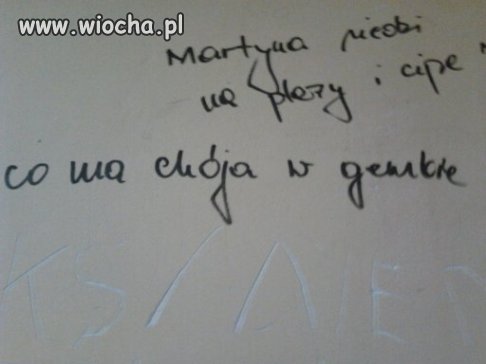 www.wiocha.pl
Martyna siedzi
na plaży i cipe
co ma chója w gembie
KS / AIE